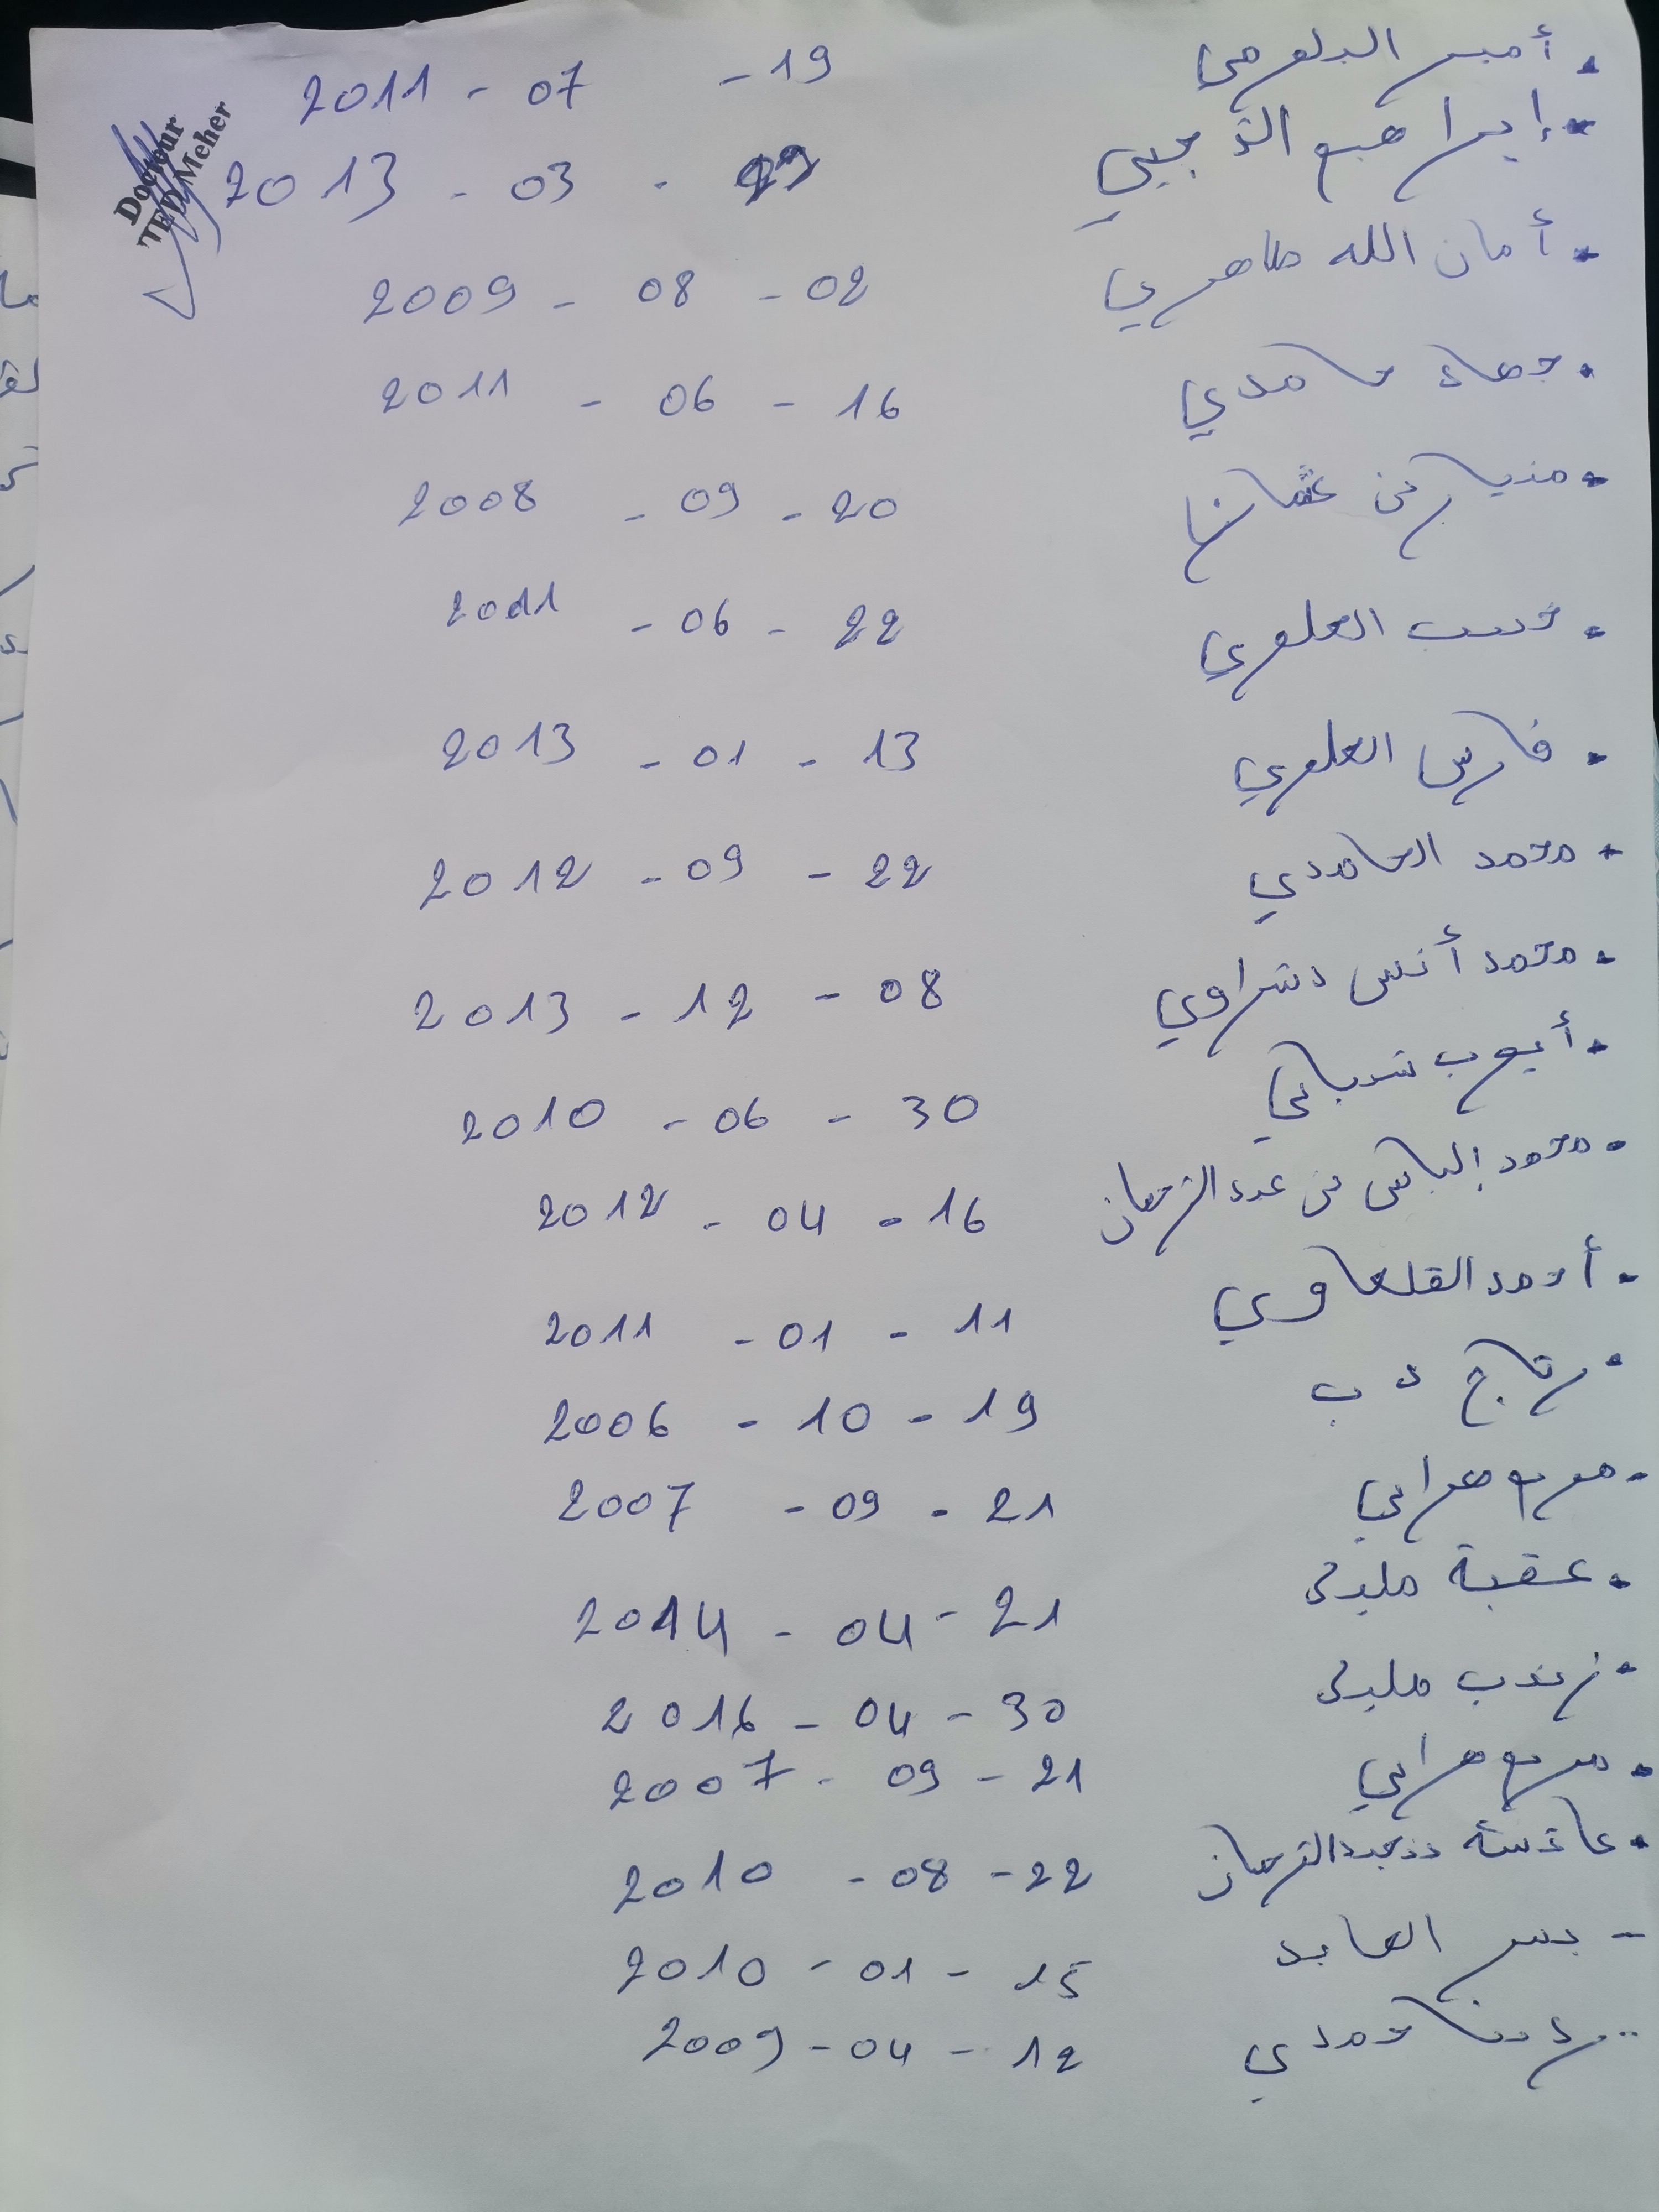 . أمير البلومي 19 - 07 - 2011
. إبراهيم الذهبي - 03 - 2013
Docteur
Meher
. أمان الله طاهري 02 - 08 - 2009
. جهاد حامدي 16 - 06 - 2011
. بن عثمان 20 - 09 - 2008
. العلوي 22 - 06 - 2011
. فارس العلوي 13 - 01 - 2013
. محمد الحامدي 22 - 09 - 2012
. محمد أنس دشراوي 08 - 12 - 2013
. أيوب شيباني 30 - 06 - 2010
. محمد إلياس بن عبد الرحمان 16 - 04 - 2012
. أحمد القلعاوي 11 - 01 - 2011
. رتاج 19 - 10 - 2006
. مريم هرابي 21 - 09 - 2007
. عقبة مليكي 21 - 04 - 2014
. زينب مليكي 30 - 04 - 2016
. مريم هرابي 21 - 09 - 2007
. عائشة بن عبد الرحمان 22 - 08 - 2010
- العابد 15 - 01 - 2010
. حمدي 12 - 04 - 2009